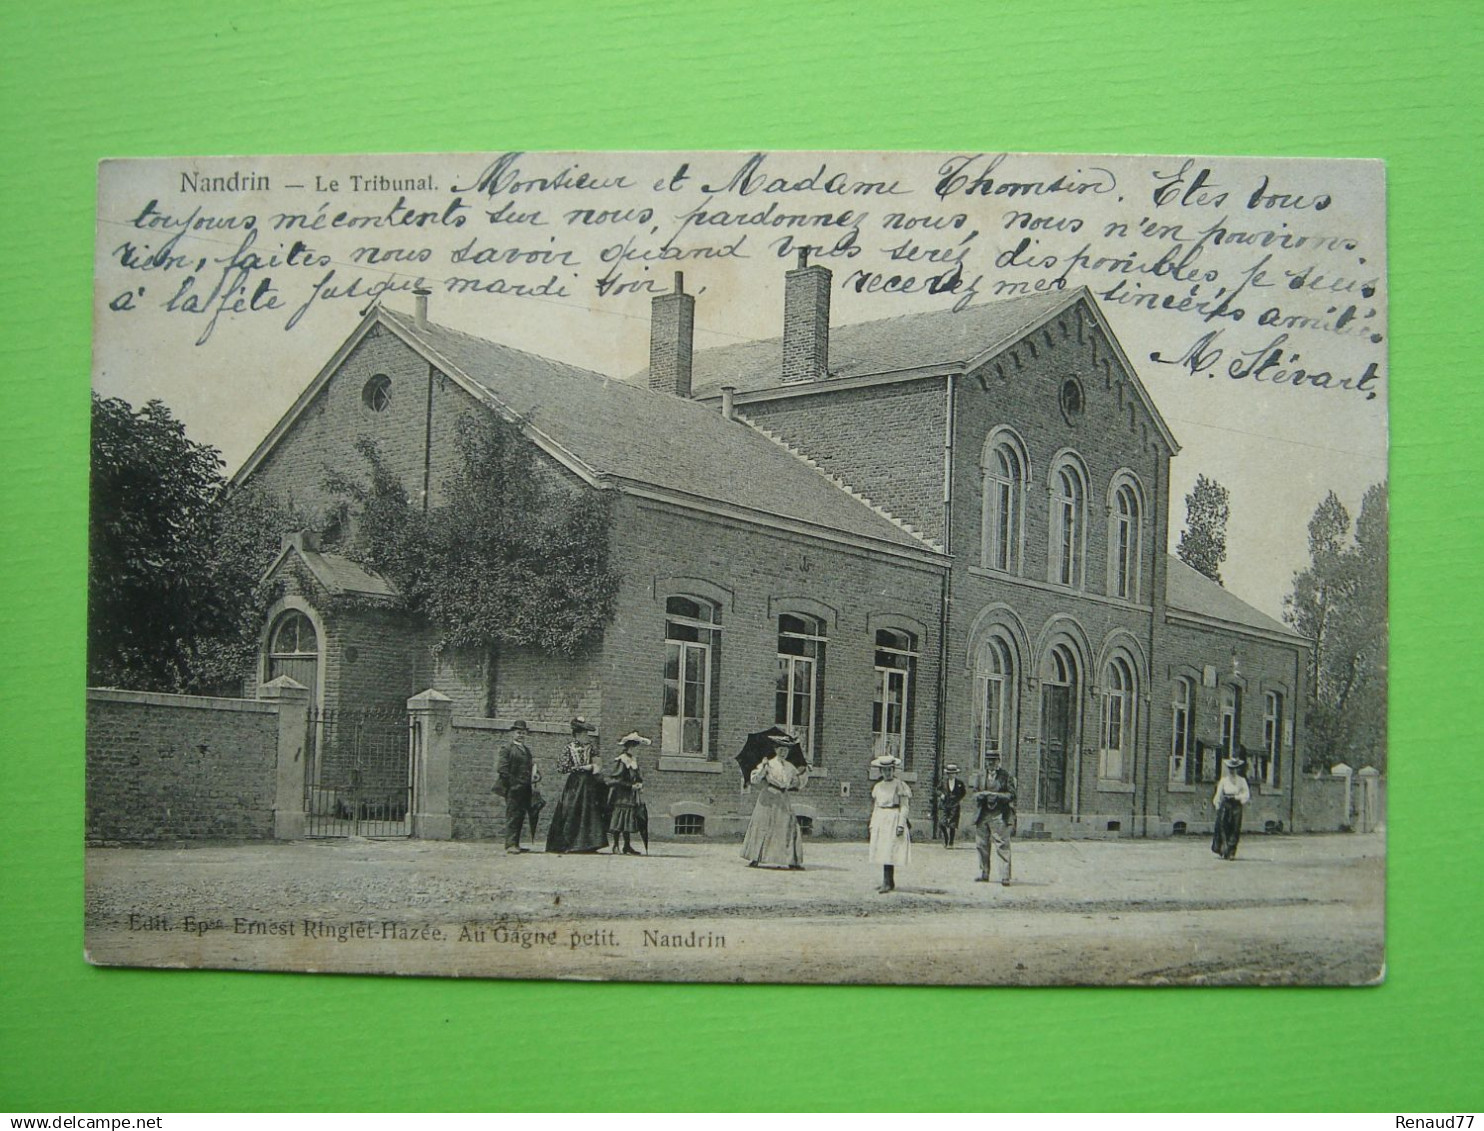 Nandrin — Le Tribunal. Monsieur et Madame Thomsin. Etes vous
toujours mécontents sur nous, pardonnez nous, nous n'en pouvions
rien, faites nous savoir quand vous serez disponibles, je suis
à la fête jusque mardi soir. recevez mes sincères amitiés
M. Stévart,
Edit. Epse Ernest Ringlet-Hazée. Au Gagne petit. Nandrin
Renaud77